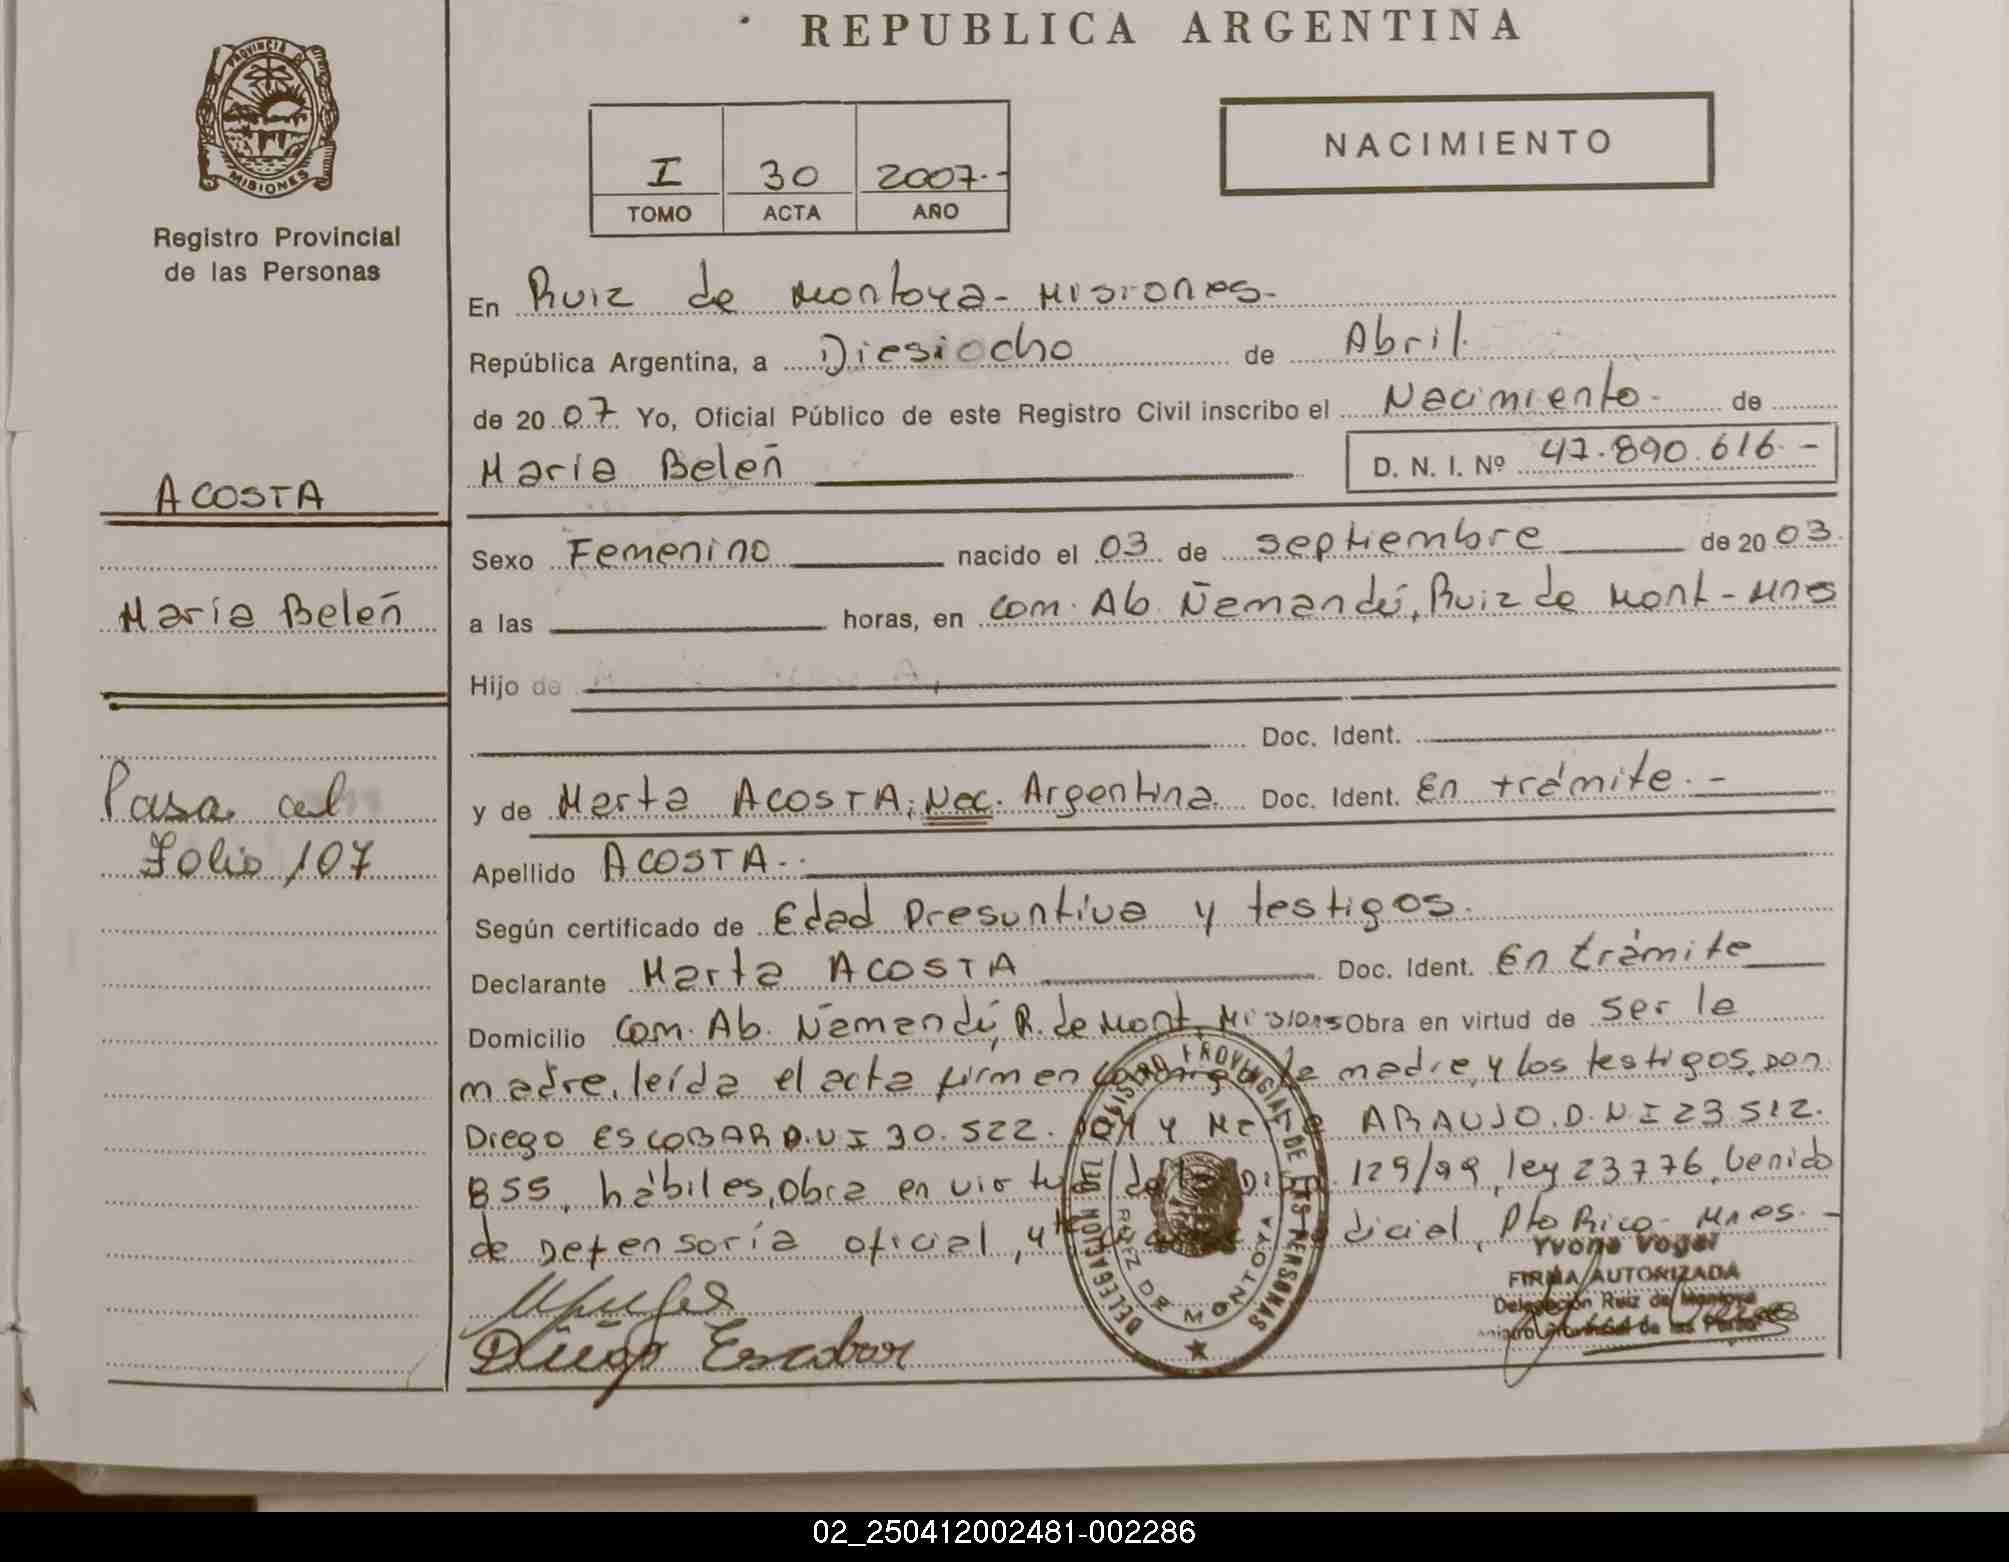 REPUBLICA ARGENTINA
PROVINCIA DE MISIONES
Registro Provincial
de las Personas
I 30 2007.-
TOMO ACTA AÑO
NACIMIENTO
En Ruiz de Montoya - Misiones.
República Argentina, a Diesiocho de Abril.
de 20 07 Yo, Oficial Público de este Registro Civil inscribo el Nacimiento de
María Belén D. N. I. Nº 47.890.616.-
ACOSTA
María Belén
Sexo Femenino nacido el 03 de septiembre de 20 03.
a las horas, en Com. Ab. Ñamandú, Ruiz de Mont - Mnes
Hijo de
Doc. Ident.
y de Marta ACOSTA, Nac. Argentina. Doc. Ident. En trámite.-
Pasa al
Folio 107
Apellido ACOSTA.
Según certificado de Edad Presuntiva y testigos.
Declarante Marta ACOSTA Doc. Ident. En trámite
Domicilio Com. Ab. Ñamandú, R. de Mont. Misions Obra en virtud de ser la
madre, leída el acta firman la madre, y los testigos, Don
Diego ESCOBAR D.N.I 30.522. y ARAUJO. D.N.I 23.512.
855, hábiles, obra en virtud 129/99, ley 23776, venido
de Defensoría oficial, 4ta dicial, Pto Rico - Mnes.-
Diego Escobar
REGISTRO PROVINCIAL DE LAS PERSONAS
DELEGACION
RUIZ DE MONTOYA
Yvone Vogel
FIRMA AUTORIZADA
Delegación Ruiz de Montoya
02_250412002481-002286